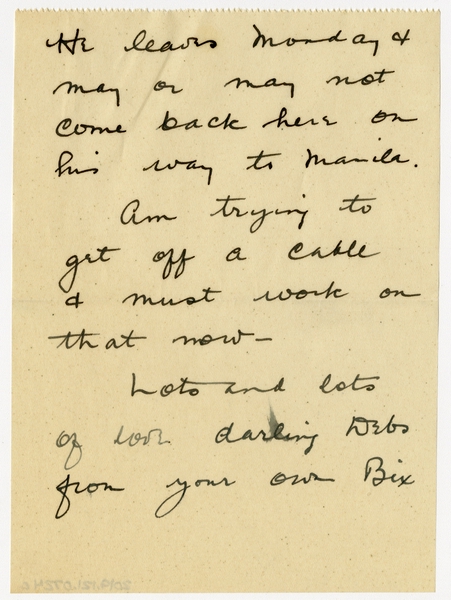 He leaves Monday &
may or may not
come back here on
his way to Manila.
Am trying to
get off a cable
& must work on
that now—
Lots and lots
of love darling Debs
from your own Bix